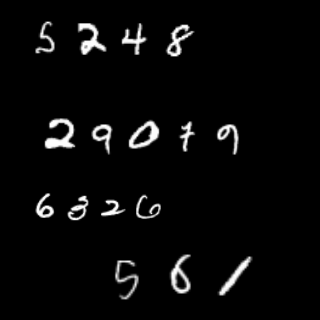 5 2 4 8
2 9 0 7 9
6 3 2 6
5 6 1